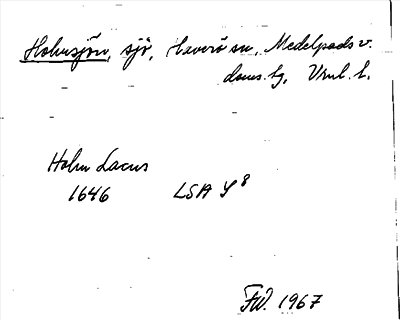 Holmsjön, sjö, Haverö sn, Medelpads v.
doms.tg, Vnrl. l.
Holm Lacus
1646 LSA Y 8
FW. 1967